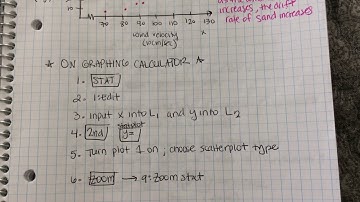 increases, the drift
rate of sand increases
10
70 80 90 100 110 120 130
wind velocity
(10cm/sec)
x
* ON GRAPHING CALCULATOR *
1. STAT
2. 1:edit
3. input x into L1 and y into L2
statplot
4. 2nd y=
5. Turn plot 1 on, choose scatterplot type
6. zoom → 9: zoom stat